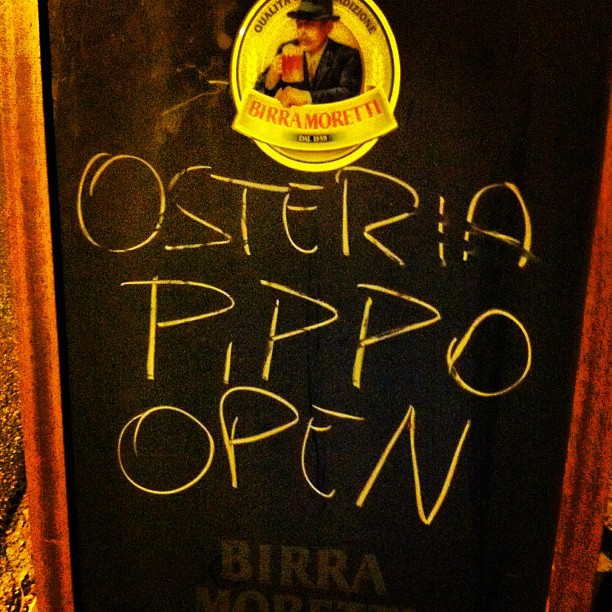 QUALITÀ TRADIZIONE
BIRRA MORETTI
DAL 1859
OSTERIA
PIPPO
OPEN
BIRRA
MORETTI